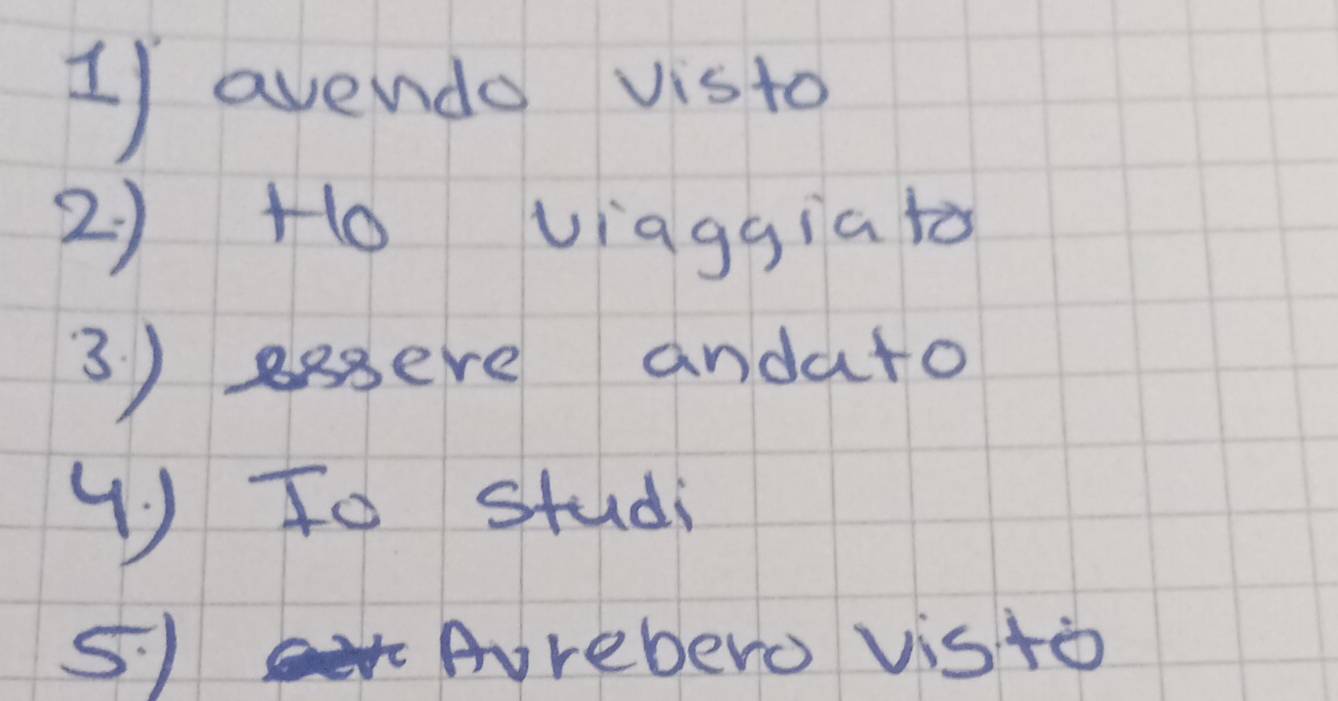 1) avendo visto
2.) Ho viaggiato
3.) essere andato
4.) Io studi
5.) Avrebero visto